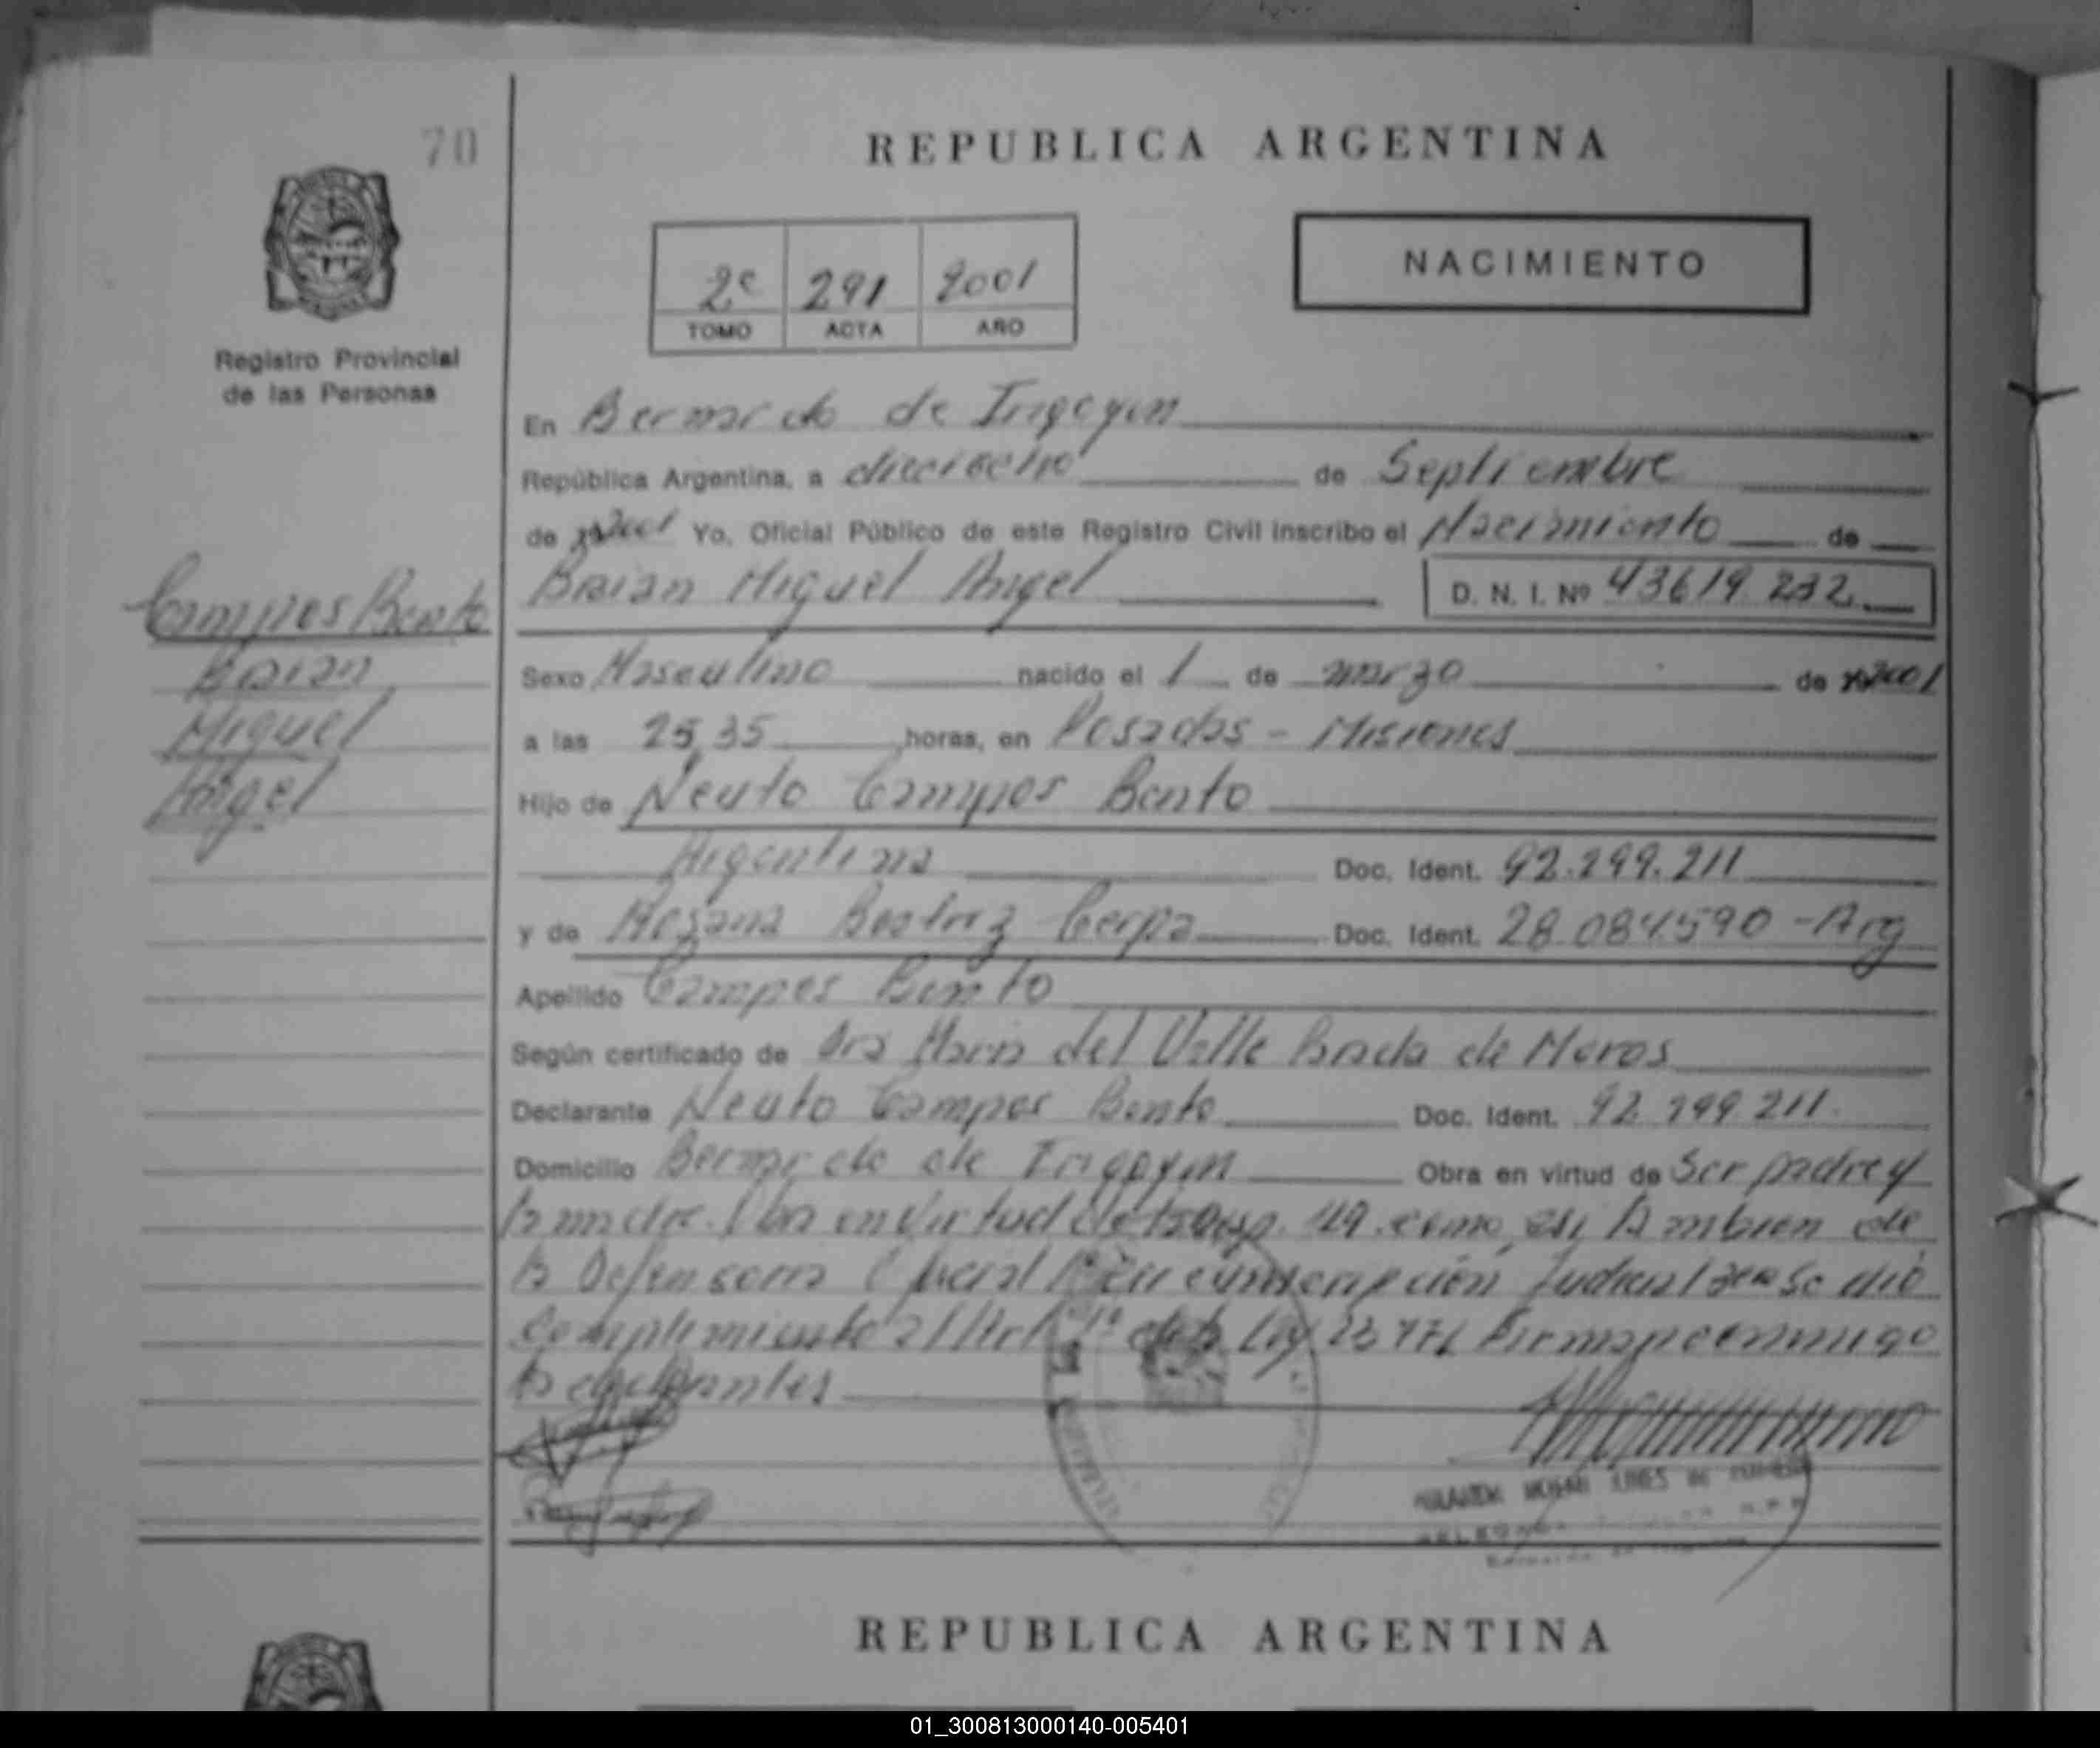 70
REPUBLICA ARGENTINA
NACIMIENTO
2º 291 2001
TOMO ACTA AÑO
Registro Provincial
de las Personas
En Bernardo de Irigoyen
República Argentina, a dieciocho de Septiembre
de 2001 Yo, Oficial Público de este Registro Civil inscribo el Nacimiento de
Braian Miguel Angel D. N. I. Nº 43619.232
Campos Bento
Braian
Miguel
Angel
Sexo Masculino nacido el 1 de marzo de 2001
a las 23,35 horas, en Posadas - Misiones
Hijo de Neuto Campos Bento
Argentina Doc. Ident. 92.299.211
y de Rosana Beatriz Cerpa Doc. Ident. 28.084.590 - Arg
Apellido Campos Bento
Según certificado de Dra Maria del Valle de
Declarante Neuto Campos Bento Doc. Ident. 92.299.211
Domicilio Bernardo de Irigoyen Obra en virtud de Ser padre y
la madre. en virtud de la Disp. como asi tambien de
la Defensoria Oficial 1ª Circunscripción Judicial se dió
Complimiento al Art 1º de la Ley Firman conmigo
REPUBLICA ARGENTINA
01_300813000140-005401